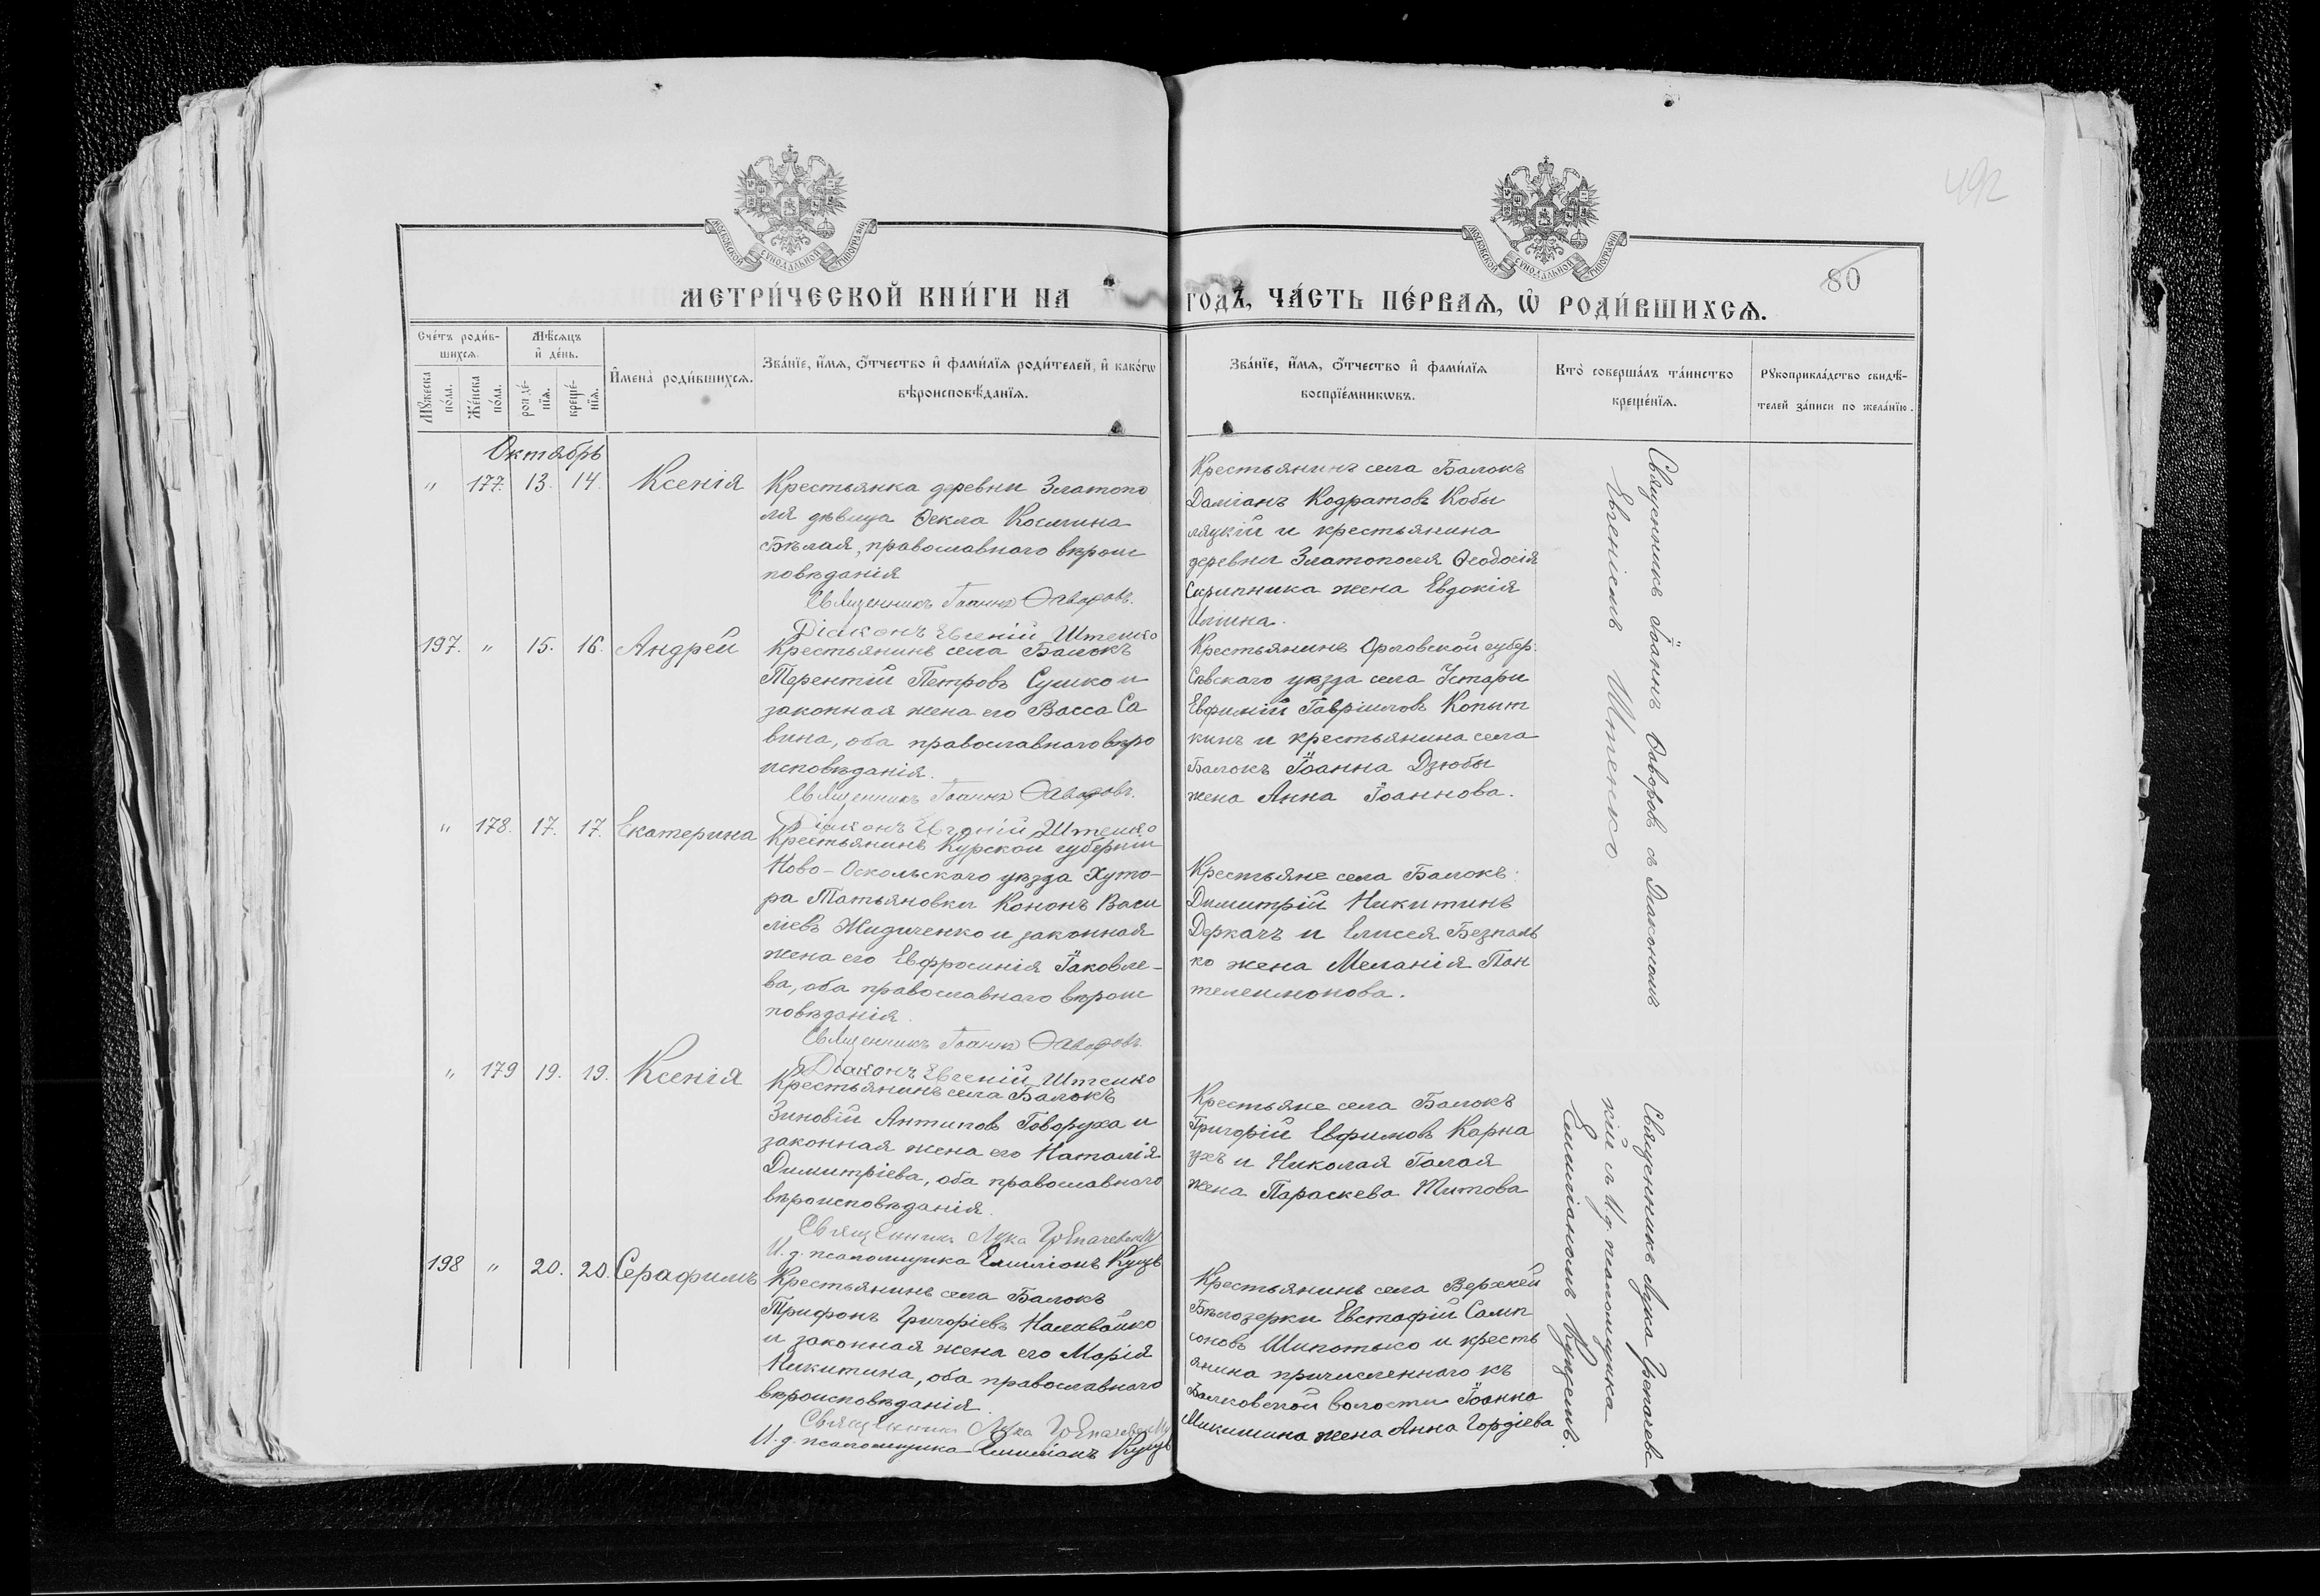 492
МОСКОВСКОЙ СѴНОДАЛЬНОЙ ТИПОГРАФІИ
МОСКОВСКОЙ СѴНОДАЛЬНОЙ ТИПОГРАФІИ
80
МЕТРИ́ЧЕСКОЙ КНИ́ГИ НА
ГОДЪ, ЧА́СТЬ ПЕ́РВАѦ, Ѡ҆ РОДИ́ВШИХСѦ.
Сче́тъ роди́в-
шихсѧ.
Мꙋ́жеска по́ла.
Же́нска по́ла.
Мѣ́сѧцъ
и҆ де́нь.
рожде́-
нїѧ.
креще́-
нїѧ.
И҆мена̀ роди́вшихсѧ.
Зва́нїе, и҆́мѧ, ѻ҆́тчество и҆ фами́лїѧ роди́телей, и҆ како́гѡ
вѣроисповѣ́данїѧ.
Зва́нїе, и҆́мѧ, ѻ҆́тчество и҆ фами́лїѧ
воспрїе́мникѡвъ.
Кто̀ соверша́лъ та́инство
креще́нїѧ.
Рꙋкоприкла́дство свидѣ́-
телей за́писи по жела́нїю.
Октябрь
" 177. 13. 14. Ксенія
Крестьянка деревни Златопо
ля дѣвица Ѳекла Космина
Бѣлая, православнаго вѣрои
повѣданія
Священникъ Іоаннъ Ѳаворовъ.
Діаконъ Евгеній Штенко
Крестьянинъ села Балокъ
Даміанъ Кодратовъ Кобы
ляцкій и крестьянина
деревни Златополя Ѳеодосія
Скрипника жена Евдокія
Илина.
197. " 15. 16. Андрей
Крестьянинъ села Балокъ
Терентій Петровъ Сушко и
законная жена его Васса Са
вина, оба православнаго вѣро
исповѣданія.
Священникъ Іоаннъ Ѳаворовъ.
Діаконъ Евгеній Штенко
Крестьянинъ Орловской губер.
Сѣвскаго уѣзда села Устари
Евфимій Гавріиловъ Копыт
кинъ и крестьянина села
Балокъ Іоанна Дзюбы
жена Анна Іоаннова.
" 178. 17. 17. Екатерина
Крестьянинъ Курской губерніи
Ново-Оскольскаго уѣзда Хуто-
ра Татьяновки Кононъ Васи
ліевъ Жидиченко и законная
жена его Евфросинія Іаковле-
ва, оба православнаго вѣроис
повѣданія.
Священникъ Іоаннъ Ѳаворовъ.
Діаконъ Евгеній Штенко
Крестьяне села Балокъ:
Димитрій Никитинъ
Деркачъ и Елисея Безпаль
ко жена Меланія Пан
телеимонова.
Священникъ Іоаннъ Ѳаворовъ съ Діакономъ
Евгеніемъ Штенко
" 179 19. 19. Ксенія
Крестьянинъ села Балокъ
Зиновій Антиповъ Говоруха и
законная жена его Наталія
Димитріева, оба православнаго
вѣроисповѣданія.
Священникъ Лука
И. д. псаломщика Емиліанъ Куцъ
Крестьяне села Балокъ
Григорій Евфимовъ Карна
ухъ и Николая Галая
жена Параскева Титова
198 " 20. 20. Серафимъ
Крестьянинъ села Балокъ
Трифонъ Григоріевъ Наливайко
и законная жена его Марія
Никитина, оба православнаго
вѣроисповѣданія.
Священникъ Лука
И. д. псаломщика Емиліанъ Куцъ
Крестьянинъ села Верхней
Бѣлозерки Евстафій Самп
соновъ Шипотько и кресть
янина причисленнаго къ
Балковской волости Іоанна
Микишина жена Анна Гордіева
Священникъ Лука
кій съ И. д. псаломщика
Емиліаномъ Куцемъ.